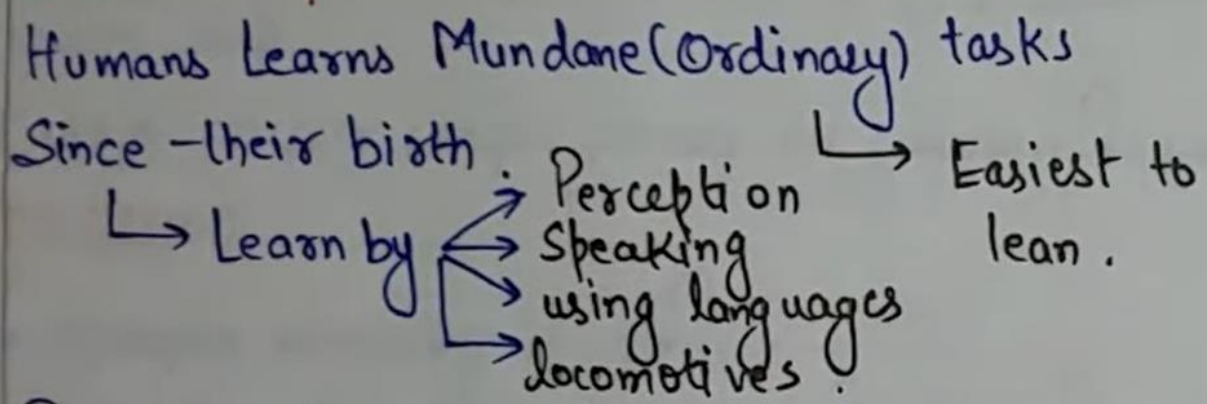 Humans Learns Mundane(Ordinary) tasks
Since their birth.
→ Easiest to
lean.
→ Learn by
→ Perception
→ Speaking
→ using languages
→ locomotives.